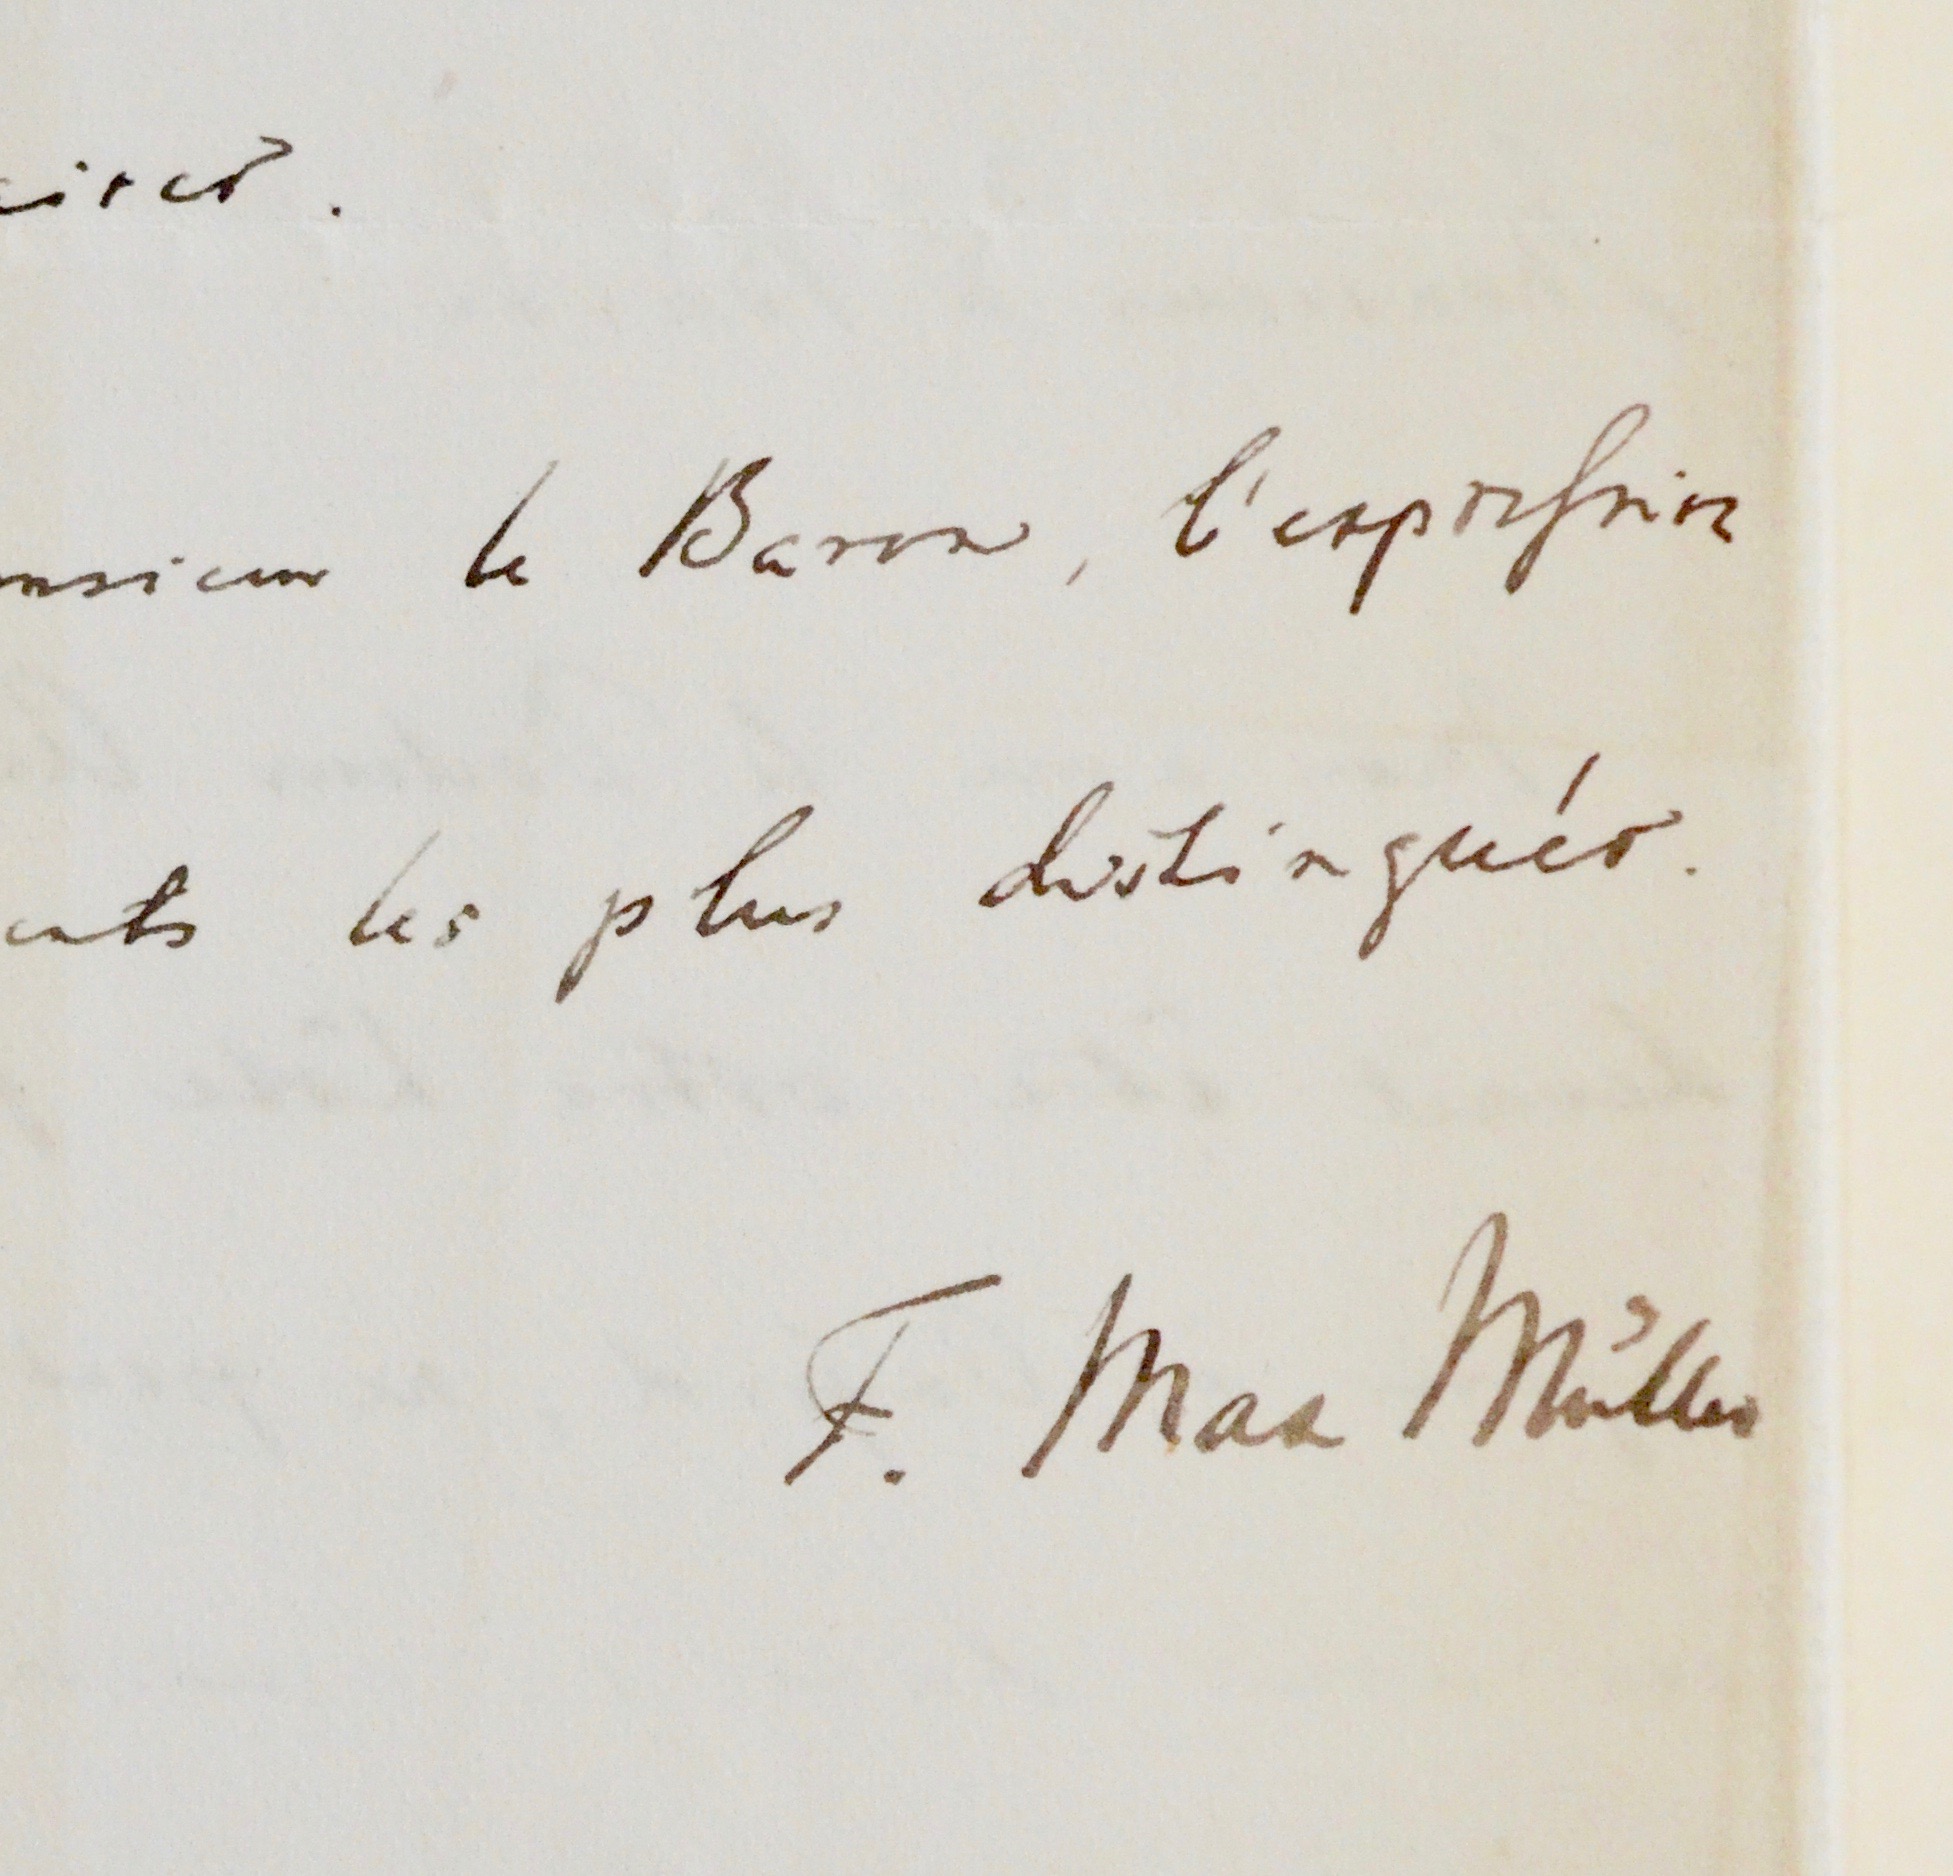 aires.
nsieur le Baron, l'expression
ents les plus distingués.
F. Max Müller